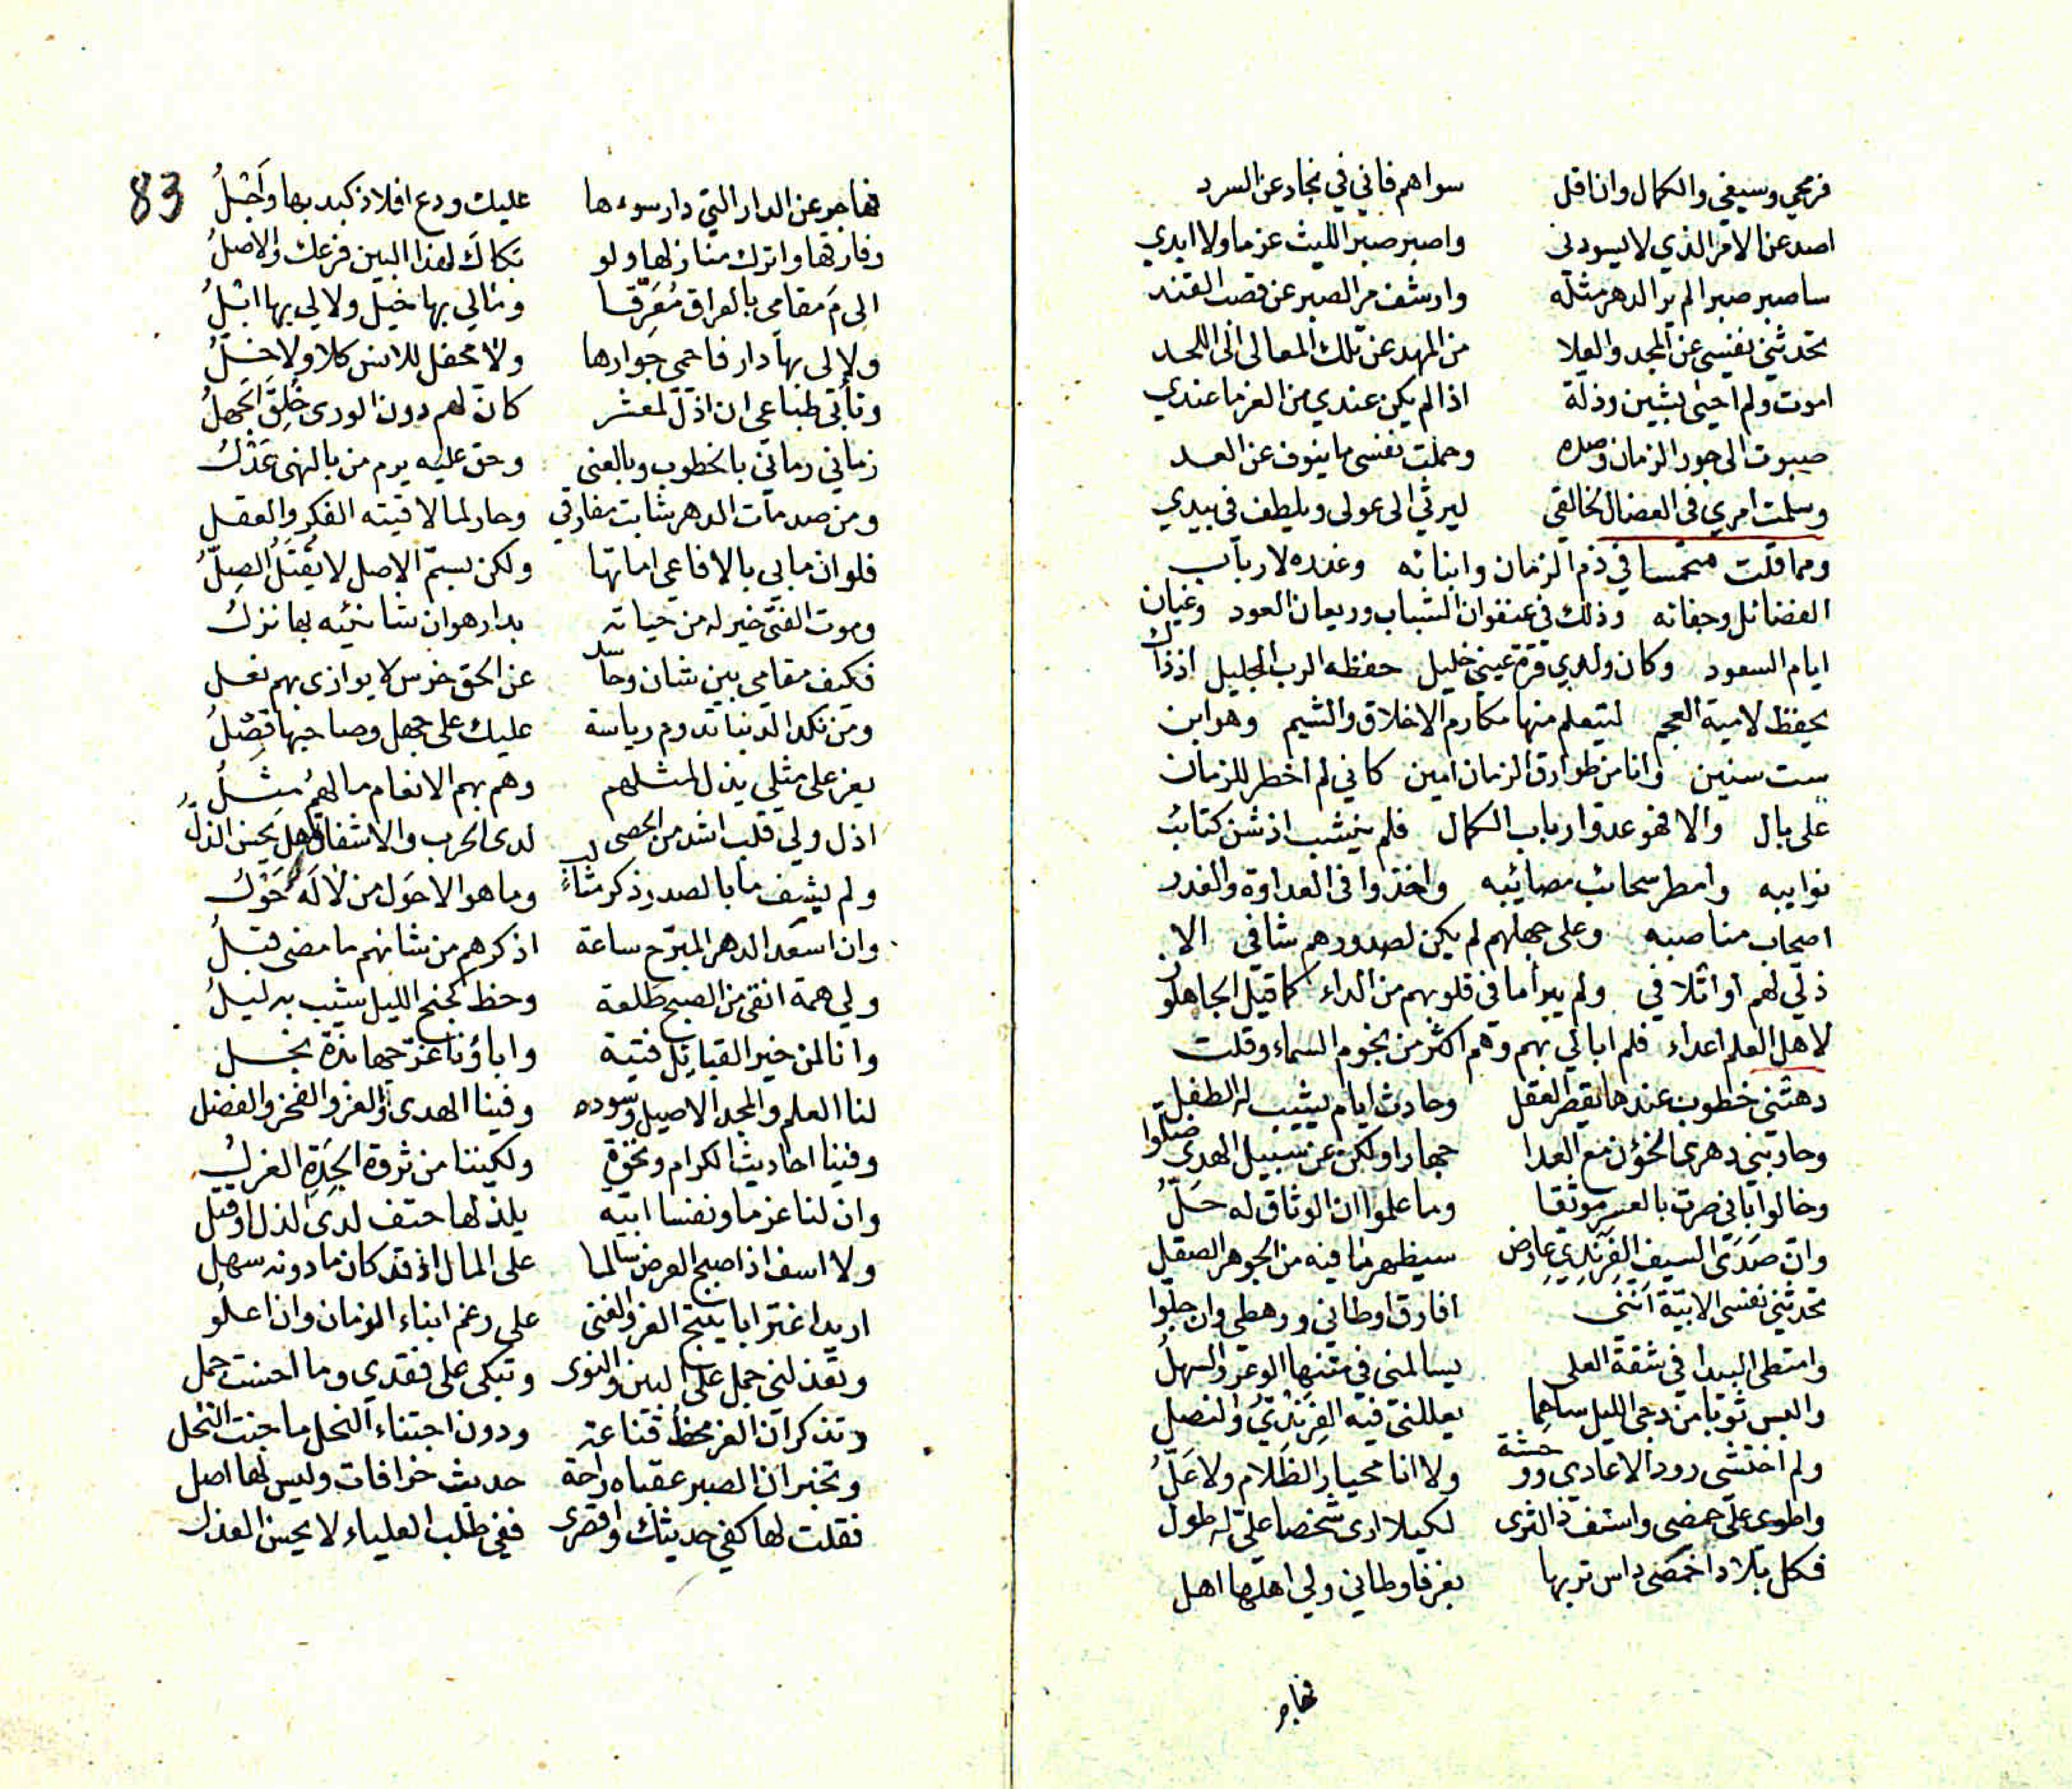 فرمحي وسيفي والكمال وانا قل سواهم فاني في نجاد عن السرد
اصد عن الامر الذي لا يسودني واصبر صبر الليث عزما ولا ابدي
ساصبر صبرا لم ير الدهر مثله وارشف مر الصبر عن قصب القند
تحدثني نفسي عن المجد والعلا من المهد عن تلك المعالي الى اللحد
اموت ولم احيى بشين وذلة اذا لم يكن عندي من العز ما عندي
صبوت الى جور الزمان وصده وحملت نفسي ما ينوف عن العد
وسلمت امري في العضال لخالقي ليرثي الى عولي ويلطف في بيدي
ومما قلت متحمسا في ذم الزمان وابنائه وغدره لارباب
الفضائل وجفائه وذلك في عنفوان الشباب وريعان العود وغيان
ايام السعود وكان ولدي قرة عيني خليل حفظه الرب الجليل اذ ذاك
يحفظ لامية العجم ليتعلم منها مكارم الاخلاق والشيم وهو ابن
ست سنين وانا من طوارق الزمان امين كاني لم اخطر للزمان
على بال والا فهو عدو ارباب الكمال فلم ينشب اذ شن كتائب
نوايبه وامطر سحائب مصائبه واخذوا في العداوة والغدر
اصحاب مناصبه وعلى جهلهم لم يكن لصدورهم شافي الا
ذلي لهم او اتلافي ولم يبرا ما في قلوبهم من الداء كما قيل الجاهلون
لاهل العلم اعداء فلم ابالي بهم وهم اكثر من نجوم السماء وقلت
دهتني خطوب عندها يقصر العقل وحادث ايام يشيب له الطفل
وحاربني دهري الخؤن مع العدا جهارا ولكن عن سبيل الهدى ضلوا
وخالوا باني صرت بالعسر موثقا وما علموا ان الوثاق له حل
وان صدى السيف الفرندي عارض سيظهر ما فيه من الجوهر الصقل
تحدثني نفسي الابية انني افارق اوطاني ورهطي وان جلوا
وامتطي البيدا في شقة العلى يسالمني في متنها الوعر والسهل
والبس ثوبا من دجى الليل ساهما يعللني فيه الفرندي والنصل
ولم اختشي رود الاعادي وو حشة ولا انا محيار الظلام ولا عل
واطوي على حمضي واستف ذا الثرى لكيلا ارى شخصا علي له طول
فكل بلاد اخمصي داس تربها بعز فاوطاني ولي اهلها اهل
فهاجر
83
فهاجر عن الدار التي دار سوءها عليك ودع افلاذ كبد بها واجل
وفارقها واترك منازلها ولو بكاك لهذا البين فرعك والاصل
الى م مقامي بالعراق مفرقا ومالي بها خيل ولا لي بها ابل
ولا لي بها دار فاحمي جوارها ولا محفل للانس كلا ولا خل
وتأبى طباعي ان اذل لمعشر كان لهم دون الورى خلق الجهل
زماني رماني بالخطوب وبالعنى وحق عليه يرم من بالنهى عذل
ومن صدمات الدهر شابت مفارقي وحار لما لاقيته الفكر والعقل
فلو ان ما بي بالافاعي اماتها ولكن بسم الاصل لا يقتل الصل
وموت الفتى خير له من حياته بدار هوان شانئيه بها نزل
فكيف مقامي بين شان وحاسد عن الحق خرس لا يوازى بهم نعل
ومن نكد الدنيا تدوم رياسة عليك على جهل وصاحبها فصل
يعز على مثلي يذل لمثلهم وهم بهم الانعام ما لهم مثل
اذل ولي قلب اشد من الحصى لدى الحرب والاشفاق هل يحسن الذل
ولم يشف ما بالصدر ذكر مثالب وما هو الا حول من لا له حول
وان اسعد الدهر المبرح ساعة اذكرهم من شانهم ما مضى قبل
ولي همة انقى من الصبح طلعة وحظ كجنح الليل شيب به ليل
وانا لمن خير القبايل فتية واباؤنا غر جهابذة نجل
لنا العلم والمجد الاصيل وسوده وفينا الهدى والعز والفخر والفضل
وفينا احاديث الكرام ونخوة ولكننا من ثروة الجدة العزل
وان لنا عزما ونفسا ابية يلذ لها حتف لدى الذل او قتل
ولا اسف اذ اصبح العرض سالما على المال اذ قد كان ما دونه سهل
اريد اغترابا ينتج العز والغنى على رغم ابناء الزمان وان اعلو
وتعذلني جمل على البين والنوى وتبكي على فقدي وما احسنت جمل
وتذكر ان العز محظ قناعة ودون اجتناء النحل ما جنت النحل
وتخبر ان الصبر عقباه راحة حديث خرافات وليس لها اصل
فقلت لها كفي حديثك واقصري ففي طلب العلياء لا يحسن العذل